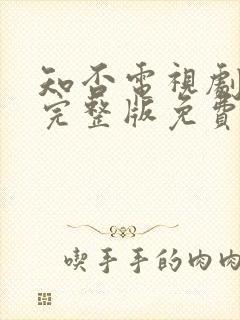 知否電視劇
完整版免費
喫手手的肉肉